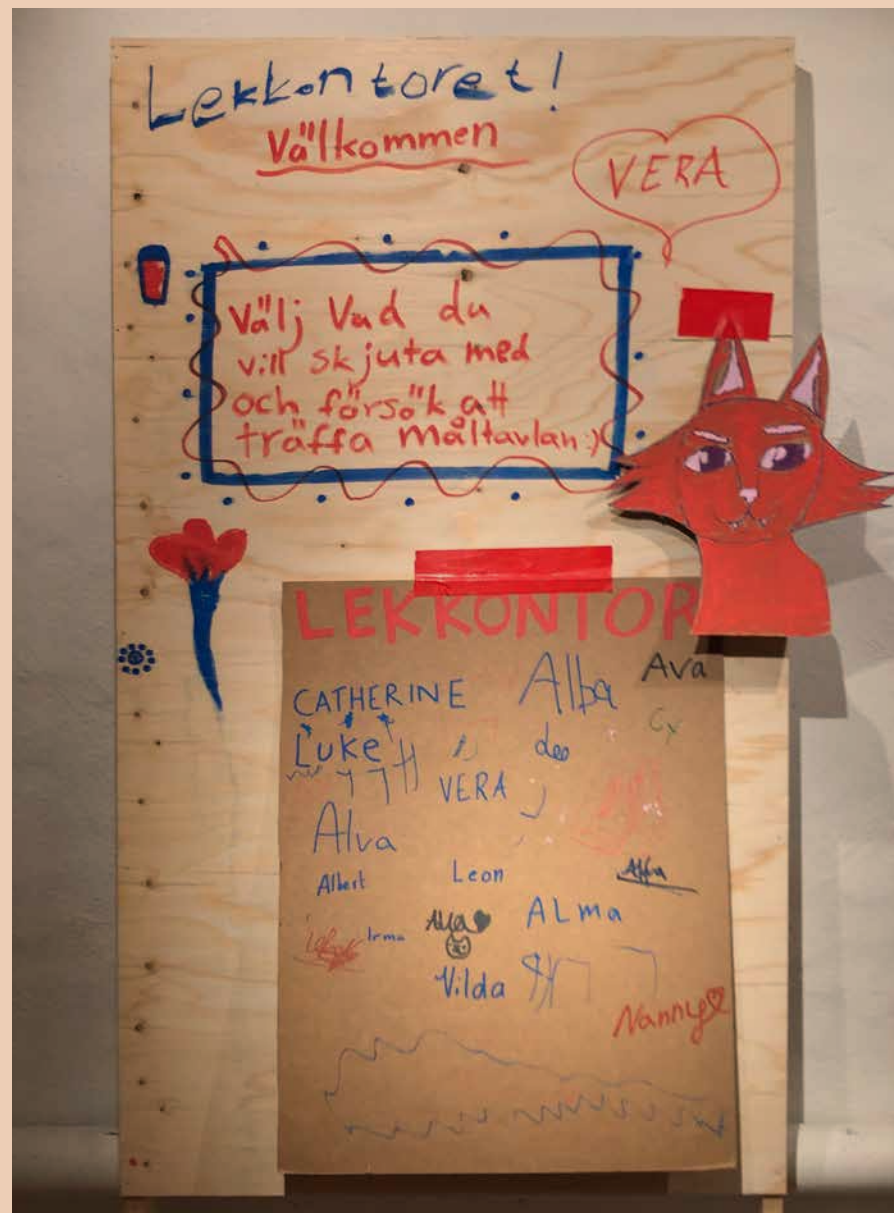 Lekkontoret!
Välkommen
VERA
Välj Vad du
vill skjuta med
och försök att
träffa måltavlan :)
LEKKONTOR
CATHERINE Alba Ava
Luke
VERA
Alva
Albert Leon
Irma ALma
Vilda
Nanny